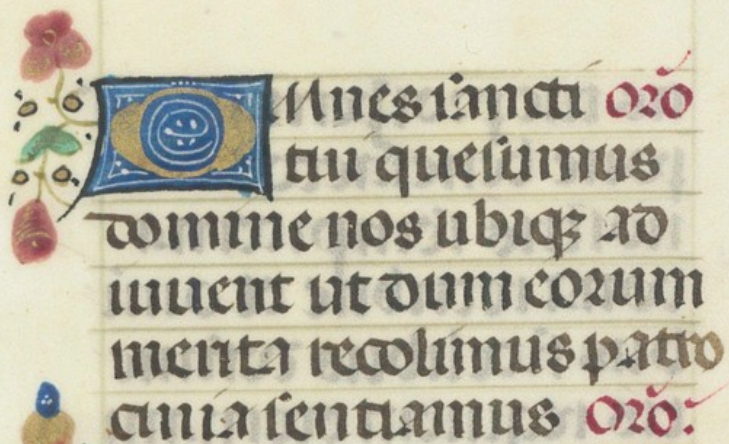 OMnes sancti oro
tui quesumus
domine nos ubiqꝫ ad
iuuent ut dum eorum
merita recolimus patro
cinia sentiamus Oro.